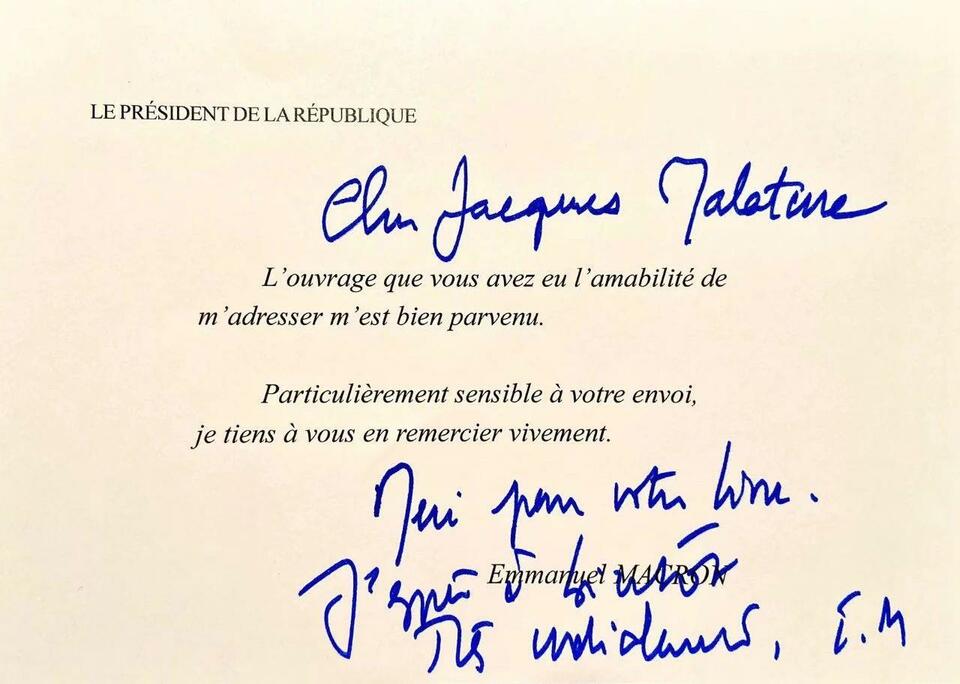 LE PRÉSIDENT DE LA RÉPUBLIQUE
Cher Jacques Malaterre
L'ouvrage que vous avez eu l'amabilité de
m'adresser m'est bien parvenu.
Particulièrement sensible à votre envoi,
je tiens à vous en remercier vivement.
Merci pour votre livre.
Emmanuel MACRON
J'espère à bientôt
Très cordialement, E.M